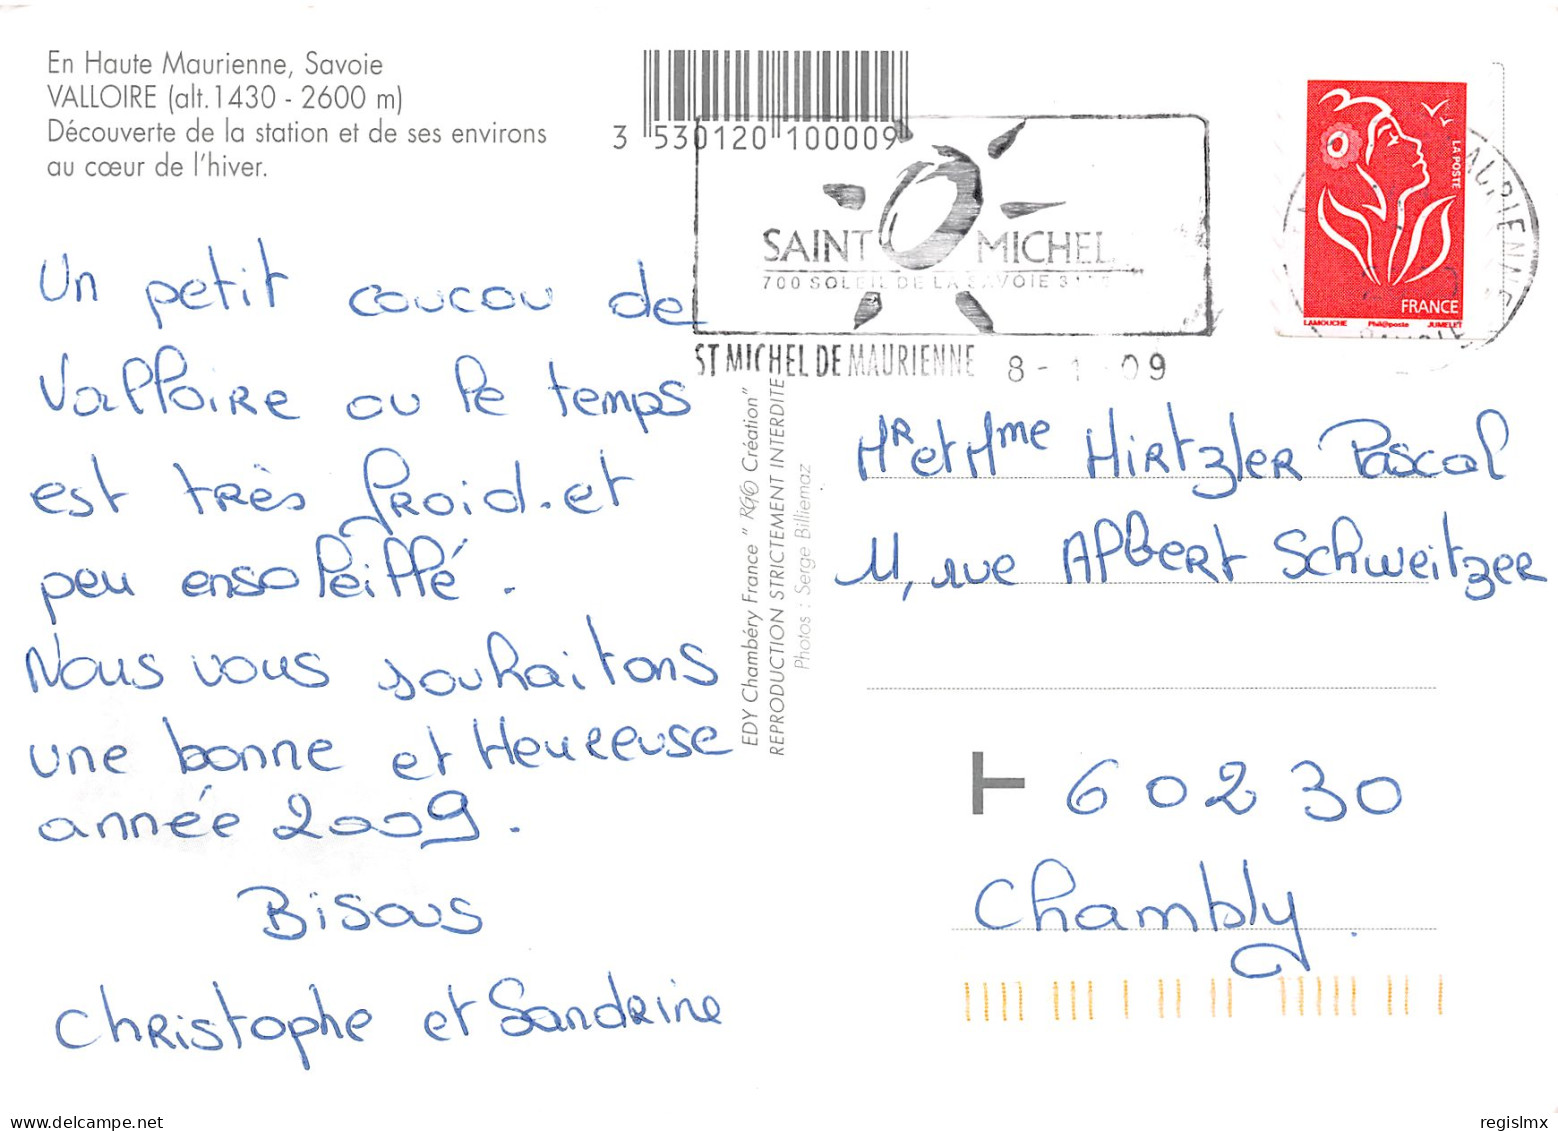 En Haute Maurienne, Savoie
VALLOIRE (alt.1430 - 2600 m)
Découverte de la station et de ses environs
au cœur de l'hiver.
3 530120 100009
SAINT MICHEL
700 SOLEIL DE LA SAVOIE
ST MICHEL DE MAURIENNE 8 - 1 09
LA POSTE
FRANCE
LAMOUCHE Phil@poste JUMELET
Un petit coucou de
Valloire ou le temps
est très froid. et
peu ensoleillé.
Nous vous souhaitons
une bonne et Heureuse
année 2009.
Bisous
Christophe et Sandrine
EDY Chambéry France " RGO Création"
REPRODUCTION STRICTEMENT INTERDITE
Photos : Serge Billiemaz
Mr et Mme Hirtzler Pascal
11, rue Albert Schweitzer
60230
Chambly
regislmx